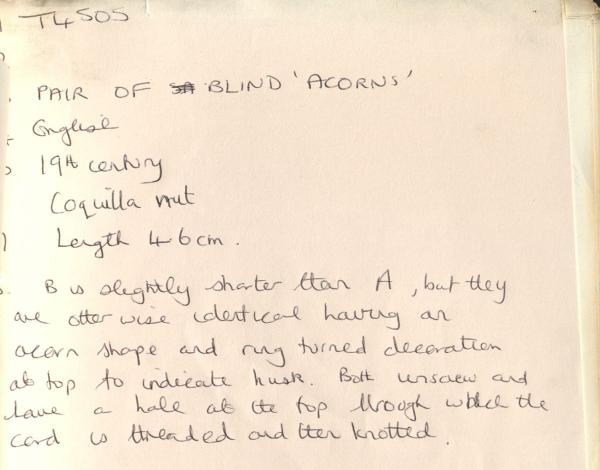 T4505
PAIR OF BLIND 'ACORNS'
English
19th century
Coquilla nut
Length 4.6cm.
B is slightly shorter than A, but they
are otherwise identical having an
acorn shape and ring turned decoration
at top to indicate husk. Both unscrew and
have a hole at the top through which the
cord is threaded and then knotted.